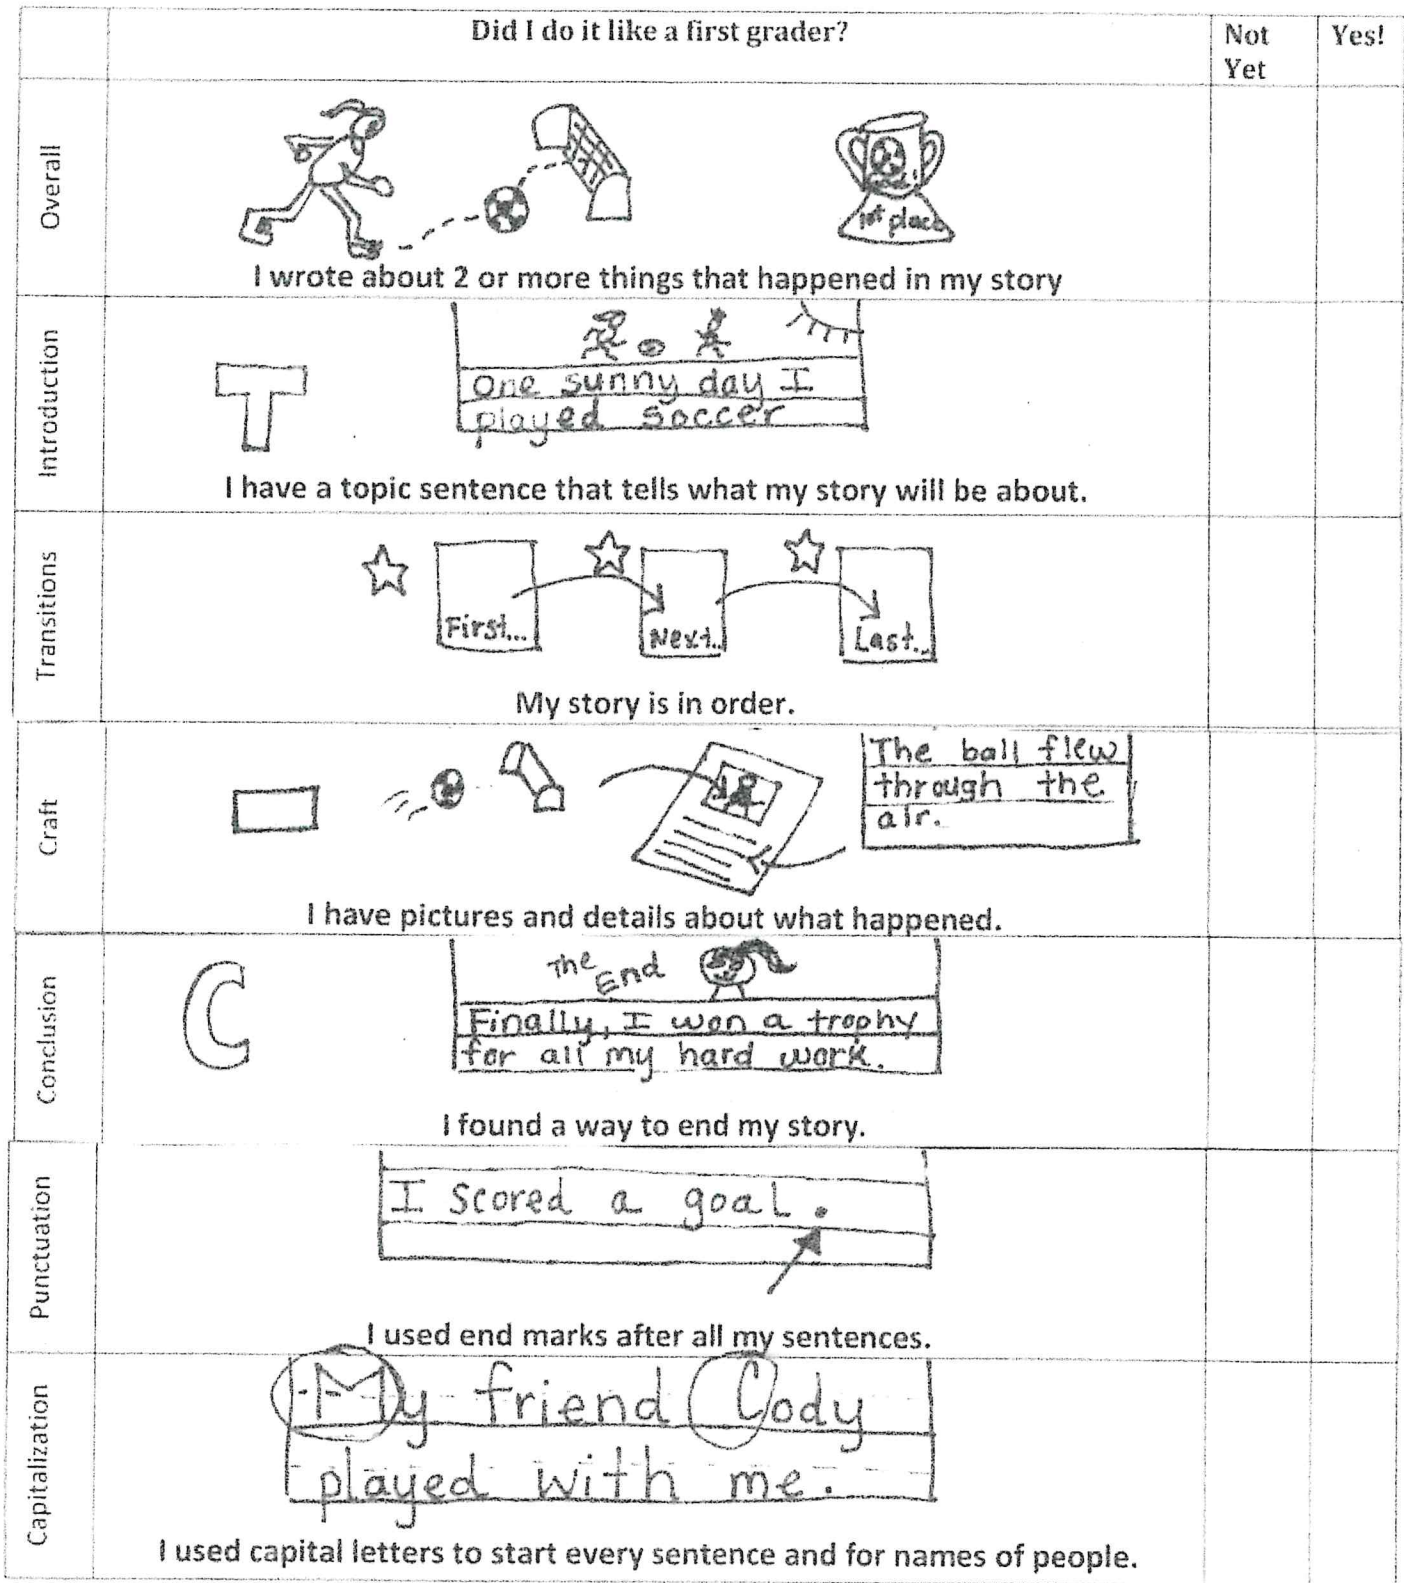 Did I do it like a first grader?
Not
Yet
Yes!
Overall
1st place
I wrote about 2 or more things that happened in my story
Introduction
T
One sunny day I
played soccer
I have a topic sentence that tells what my story will be about.
Transitions
First...
Next..
Last...
My story is in order.
Craft
The ball flew
through the
air.
I have pictures and details about what happened.
Conclusion
C
The
End
Finally, I won a trophy
for all my hard work.
I found a way to end my story.
Punctuation
I scored a goal.
I used end marks after all my sentences.
Capitalization
My friend Cody
played with me.
I used capital letters to start every sentence and for names of people.